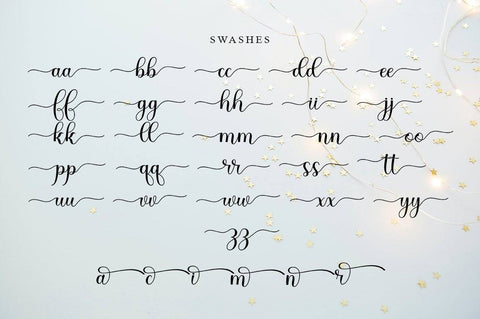 SWASHES
aa bb cc dd ee
ff gg hh ii jj
kk ll mm nn oo
pp qq rr ss tt
uu vv ww xx yy
zz
a o t m n r